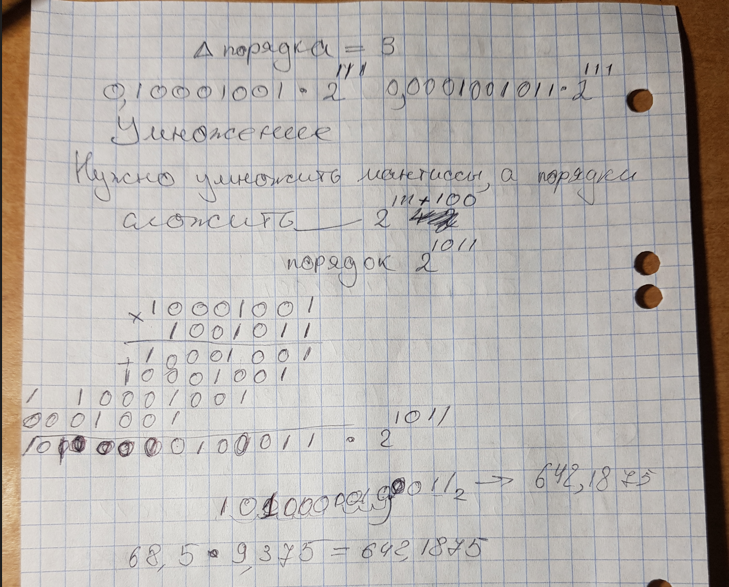 Δ порядка = 3
0,10001001 · 2^111 0,0001001011 · 2^111
Умножение
Нужно умножить мантиссы, а порядки
сложить 2^111+100
порядок 2^1011
× 10001001
1001011
+ 10001001
10001001
1 10001001
0001001
10100000100011 · 2^1011
₂ → 642,1875
68,5 · 9,375 = 642,1875